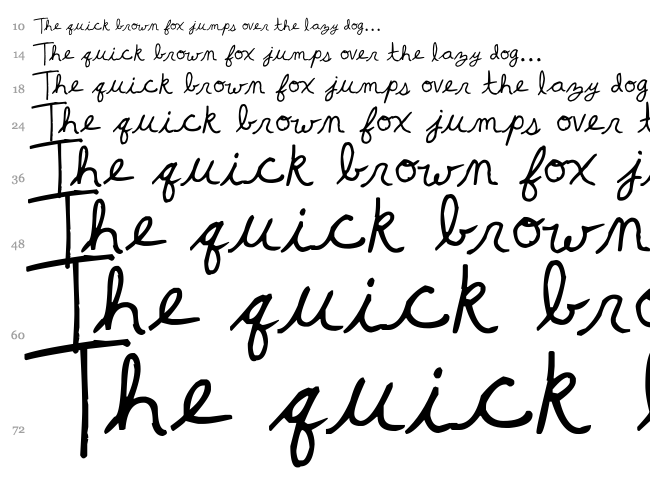 10 The quick brown fox jumps over the lazy dog...
14 The quick brown fox jumps over the lazy dog...
18 The quick brown fox jumps over the lazy dog
24 The quick brown fox jumps over t
36 The quick brown fox j
48 The quick brown
60 The quick bro
72 The quick